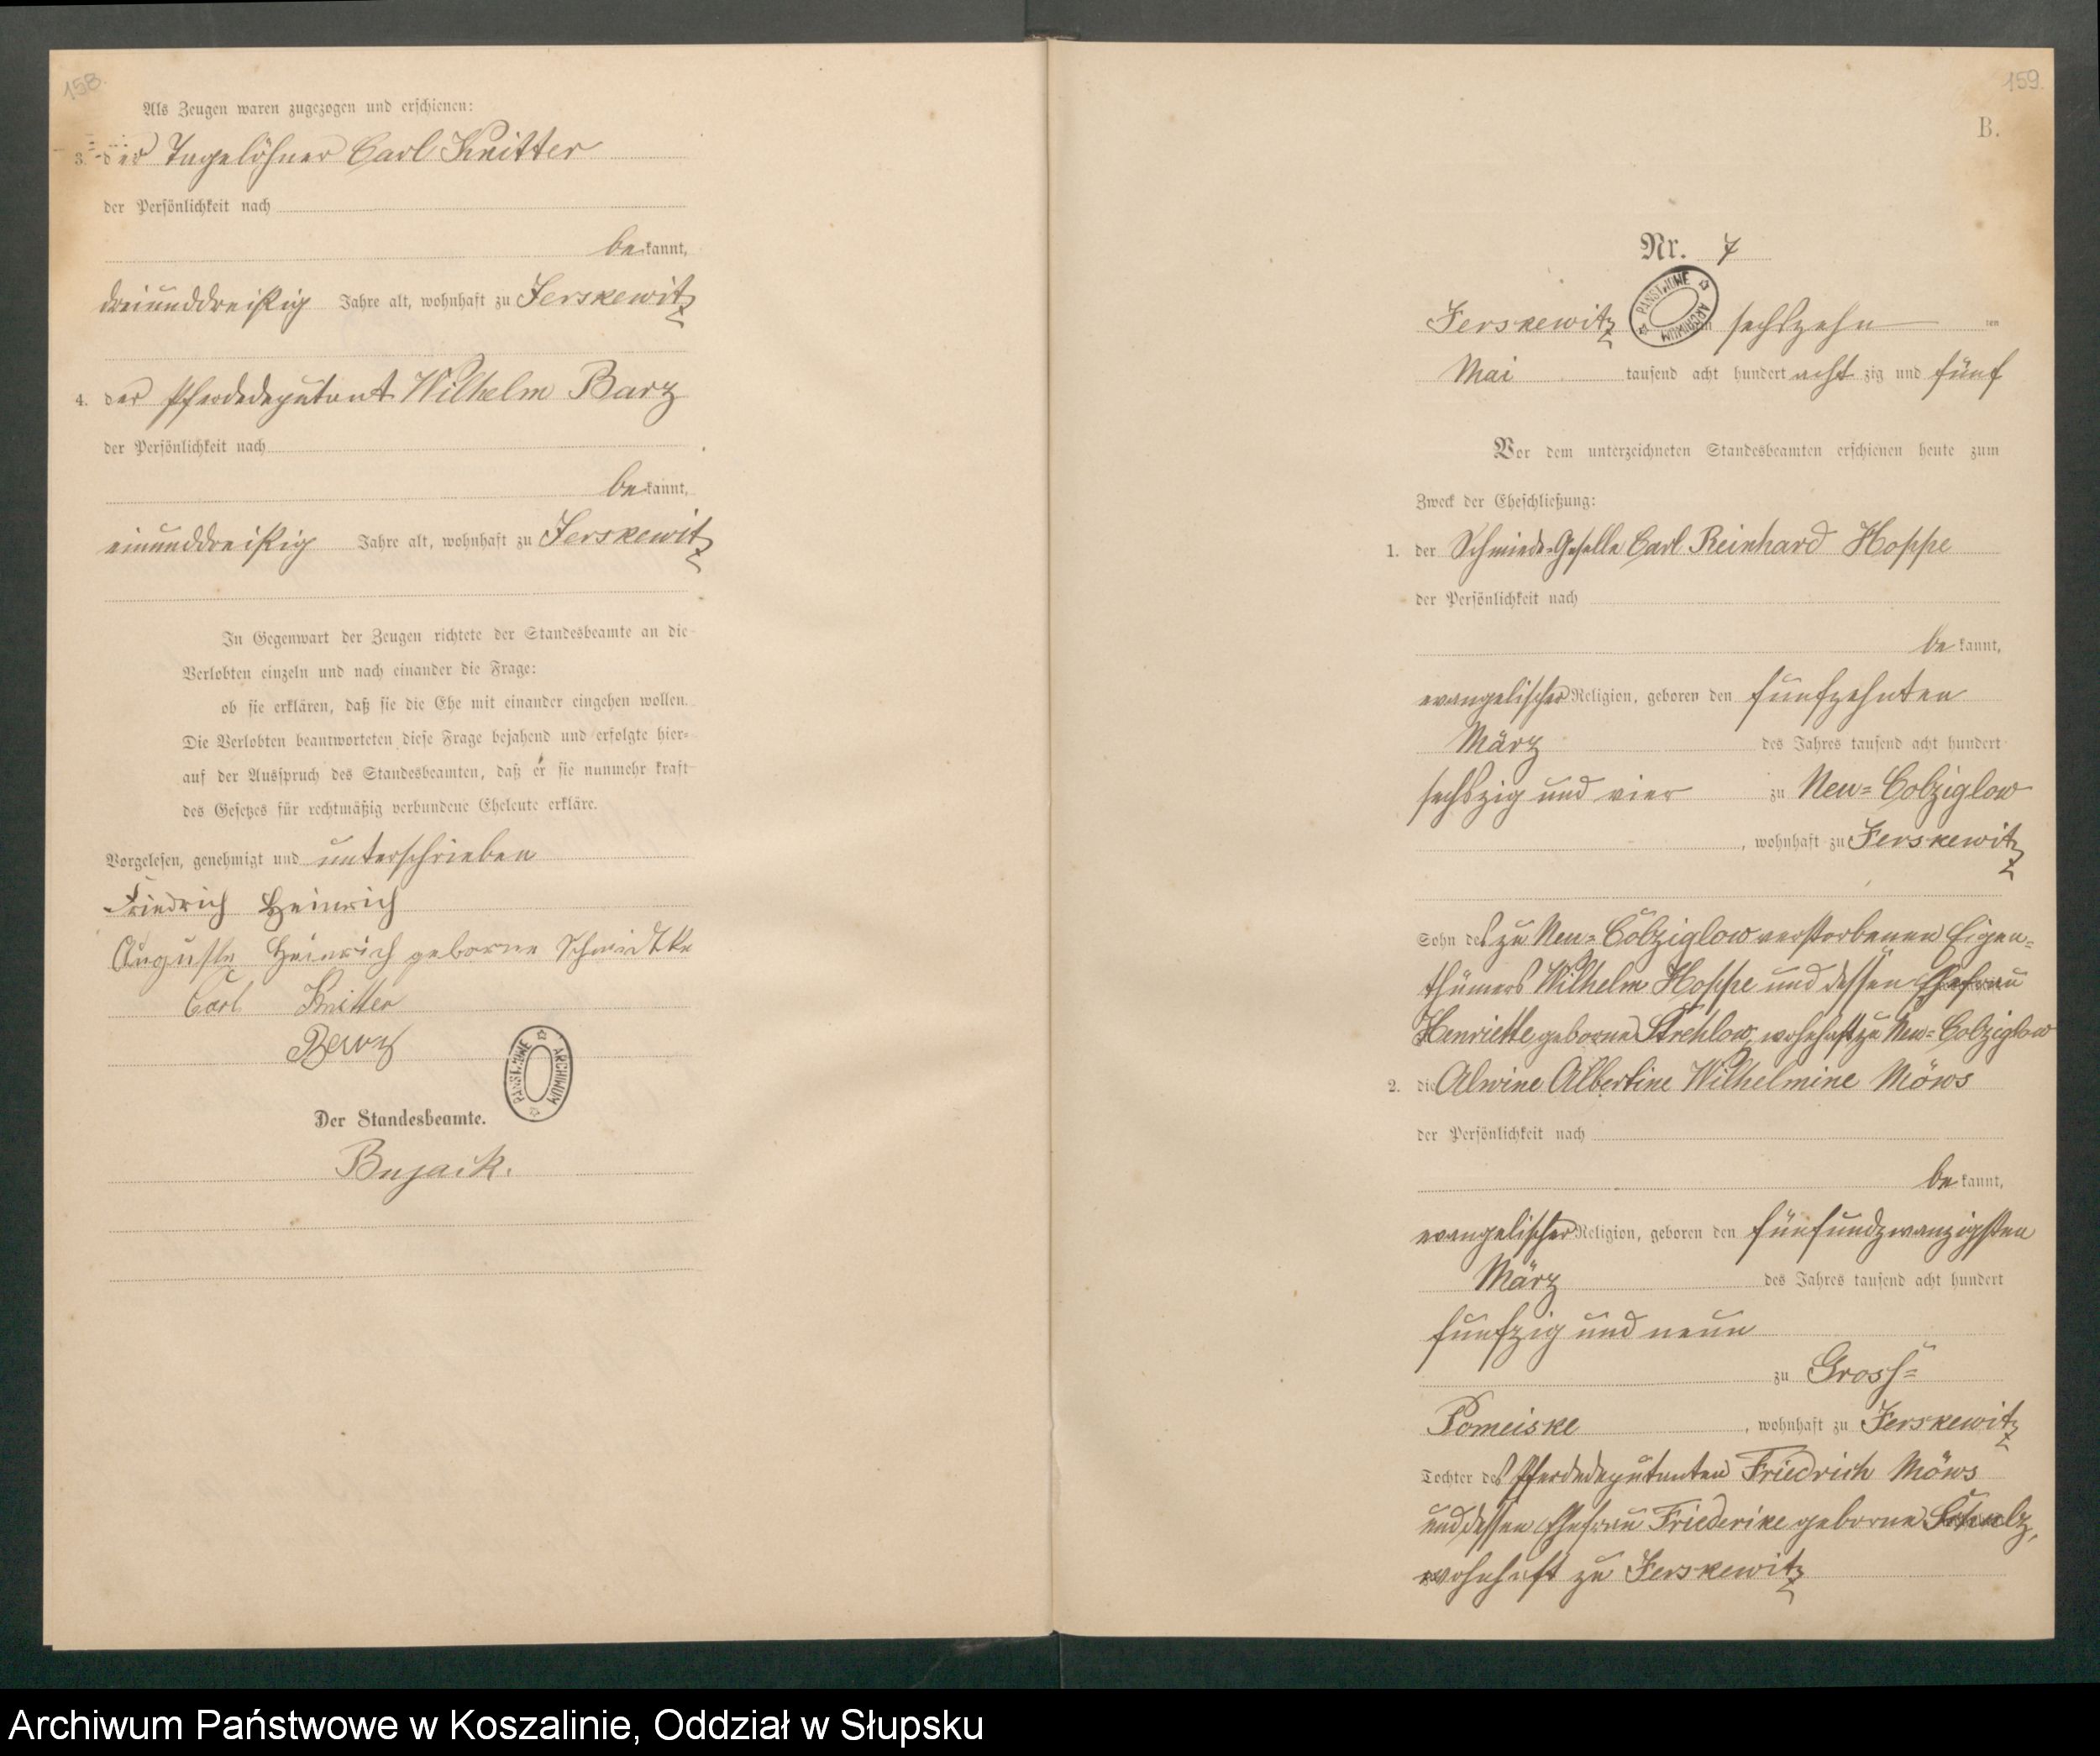 158.
Als Zeugen waren zugezogen und erschienen:
3. der Tagelöhner Carl Knitter
der Persönlichkeit nach
be kannt,
dreiunddreißig Jahre alt, wohnhaft zu Jerskewitz
4. der Pferdedeputant Wilhelm Barz
der Persönlichkeit nach
be kannt,
einunddreißig Jahre alt, wohnhaft zu Jerskewitz
In Gegenwart der Zeugen richtete der Standesbeamte an die
Verlobten einzeln und nach einander die Frage:
ob sie erklären, daß sie die Ehe mit einander eingehen wollen.
Die Verlobten beantworteten diese Frage bejahend und erfolgte hier-
auf der Ausspruch des Standesbeamten, daß er sie nunmehr kraft
des Gesetzes für rechtmäßig verbundene Eheleute erkläre.
Vorgelesen, genehmigt und unterschrieben
Friedrich Heinrich
Auguste Heinrich geborne Schmidtke
Carl Knitter
PAŃSTWOWE ARCHIWUM
Der Standesbeamte.
Bujack.
159.
B.
Nr. 7
Jerskewitz sechszehn ten
PAŃSTWOWE ARCHIWUM
Mai tausend acht hundert acht zig und fünf
Vor dem unterzeichneten Standesbeamten erschienen heute zum
Zweck der Eheschließung:
1. der Schmiede-Geselle Carl Reinhard Hoppe
der Persönlichkeit nach
be kannt,
evangelischer Religion, geboren den fünfzehnten
März des Jahres tausend acht hundert
sechszig und vier zu Neu-Colziglow
, wohnhaft zu Jerskewitz
Sohn des zu Neu-Colziglow verstorbenen Eigen-
thümers Wilhelm Hoppe und dessen Ehefrau
Henriette geborne Strehlow, wohnhaft zu Neu-Colziglow
2. die Alwine Albertine Wilhelmine Möws
der Persönlichkeit nach
be kannt,
evangelischer Religion, geboren den fünfundzwanzigsten
März des Jahres tausend acht hundert
fünfzig und neun
zu Gross-
Pomeiske, wohnhaft zu Jerskewitz
Tochter des Pferdedeputanten Friedrich Möws
und dessen Ehefrau Friederike geborne Schulz,
wohnhaft zu Jerskewitz
Archiwum Państwowe w Koszalinie, Oddział w Słupsku